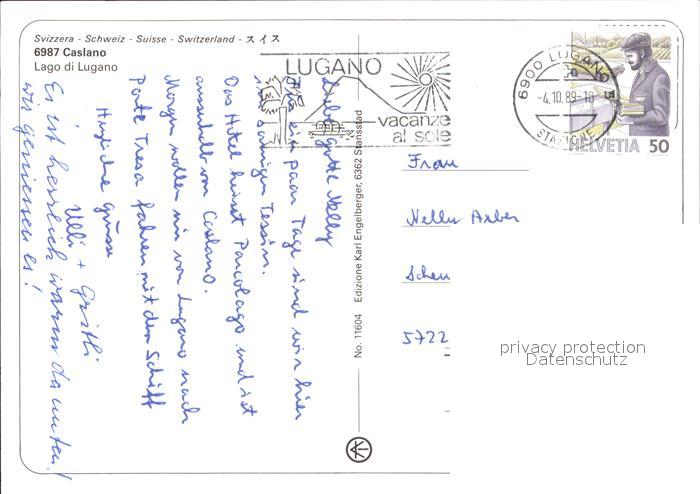 Svizzera - Schweiz - Suisse - Switzerland - スイス
6987 Caslano
Lago di Lugano
LUGANO
vacanze
al sole
6900 LUGANO 3
-4.10.89-18
STAZIONE
HELVETIA 50
Liebe Nelly
ein paar Tage sind wir hier
im sonnigen Tessin.
Das Hotel heisst Pancolago und ist
ausserhalb von Caslano.
Morgen wollen wir von Lugano nach
Ponte Tresa fahren mit dem Schiff
Herzliche Grüsse
Ulli + Gritli
Es ist herrlich warm da unten!
wir geniessen es!
No. 11604 Edizione Karl Engelberger, 6362 Stansstad
Frau
Nelly
5722
privacy protection
Datenschutz